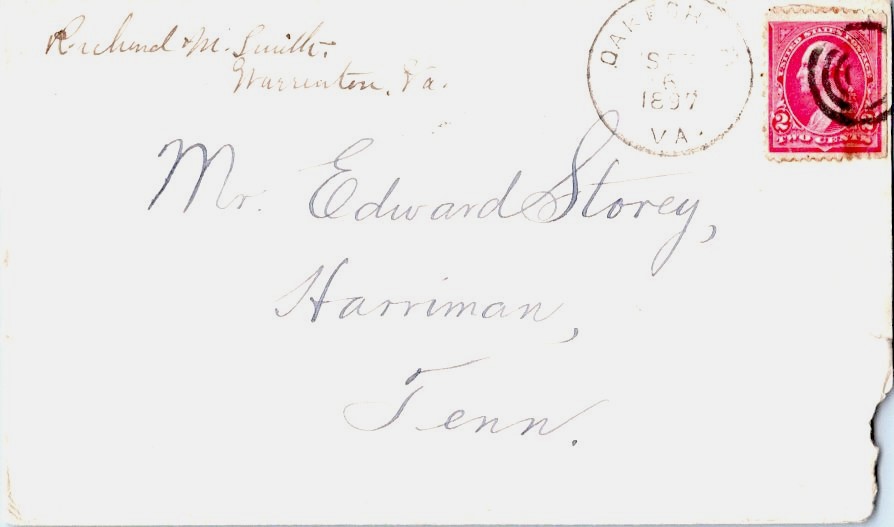 Richard M. Smith.
Warrenton, Va.
1897
VA.
UNITED STATES POSTAGE
2 2
TWO CENTS
Mr. Edward Storey,
Harriman,
Tenn.